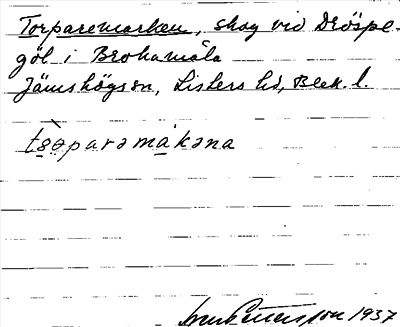 Torparemarken, skog vid Dröspe-
göl i Brokamåla
Jämshögs sn, Listers hd, Blek. l.
tṣəparəmakəna
1937